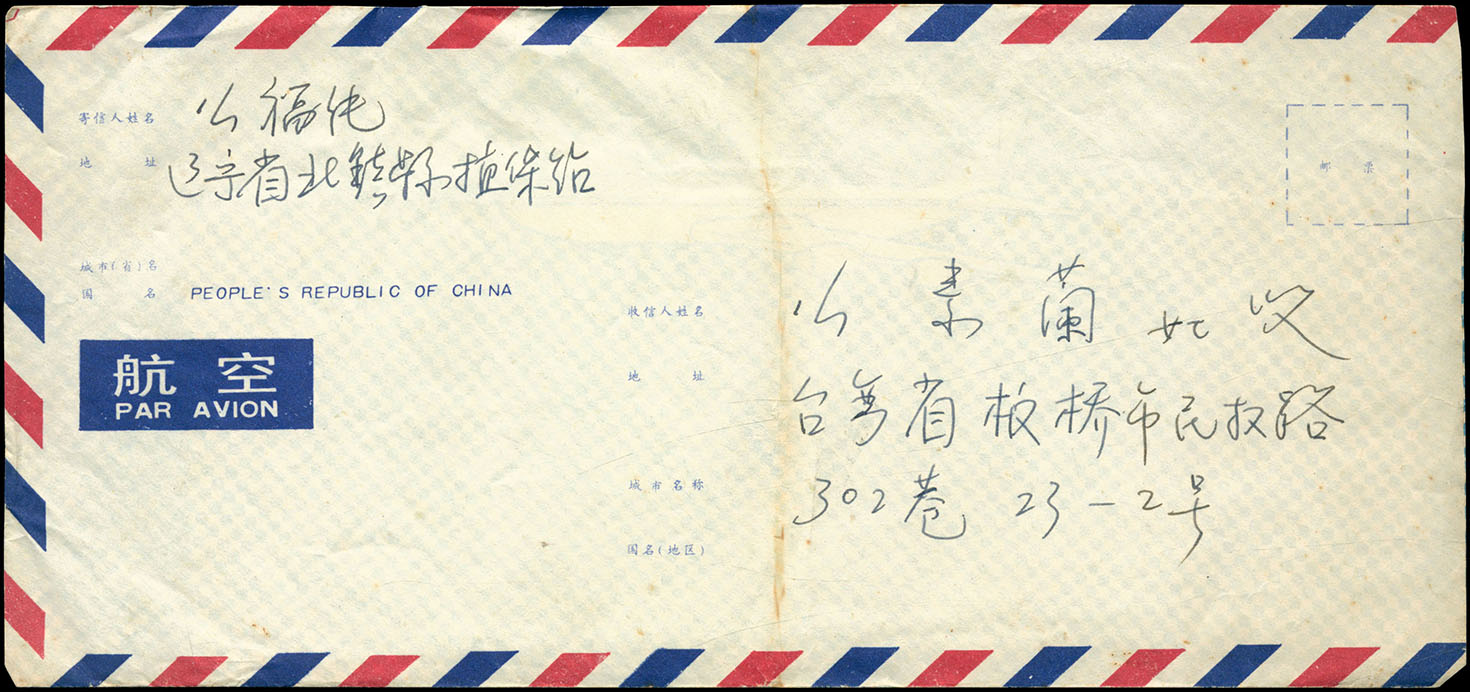 寄信人姓名 公福纯
地 址 辽宁省北鎮縣植保站
邮 票
城市(省)名
国 名 PEOPLE'S REPUBLIC OF CHINA
航空
PAR AVION
收信人姓名 公素蘭 收
地 址 台湾省板桥市民权路
302巷 23-2号
城市名称
国名(地区)